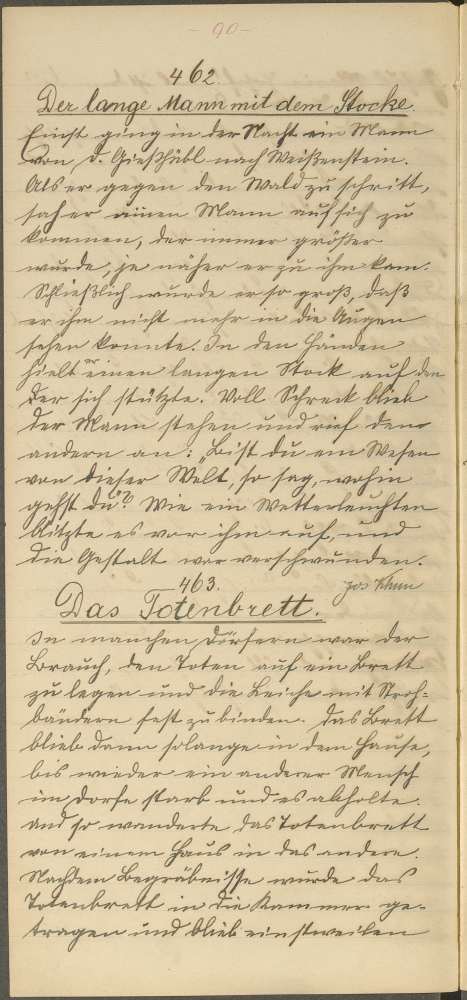 - 90 -
462.
Der lange Mann mit dem Stocke.
Einst ging in der Nacht ein Mann
von D. Gießhübl nach Weißenstein.
Als er gegen den Wald zu schritt,
sah er einen Mann auf sich zu
kommen, der immer größer
wurde, je näher er zu ihm kam.
Schließlich wurde er so groß, daß
er ihm nicht mehr in die Augen
sehen konnte. In den Händen
hielt er einen langen Stock auf den
der sich stützte. Voll Schreck blieb
der Mann stehen und rief dem
andern an: „Bist du ein Wesen
von dieser Welt, so sag, wohin
gehst du?" Wie ein Wetterleuchten
blitzte es vor ihm auf, und
die Gestalt war verschwunden.
463.
Das Totenbrett.
In manchen Dörfern war der
Brauch, den Toten auf ein Brett
zu legen und die Leiche mit Stroh=
bändern fest zu binden. Das Brett
blieb dann solange in dem Hause,
bis wieder ein anderer Mensch
im Dorfe starb und es abholte.
Und so wanderte das Totenbrett
von einem Haus in das andere.
Nach dem Begräbnisse wurde das
Totenbrett in die Kammer ge-
tragen und blieb einstweilen